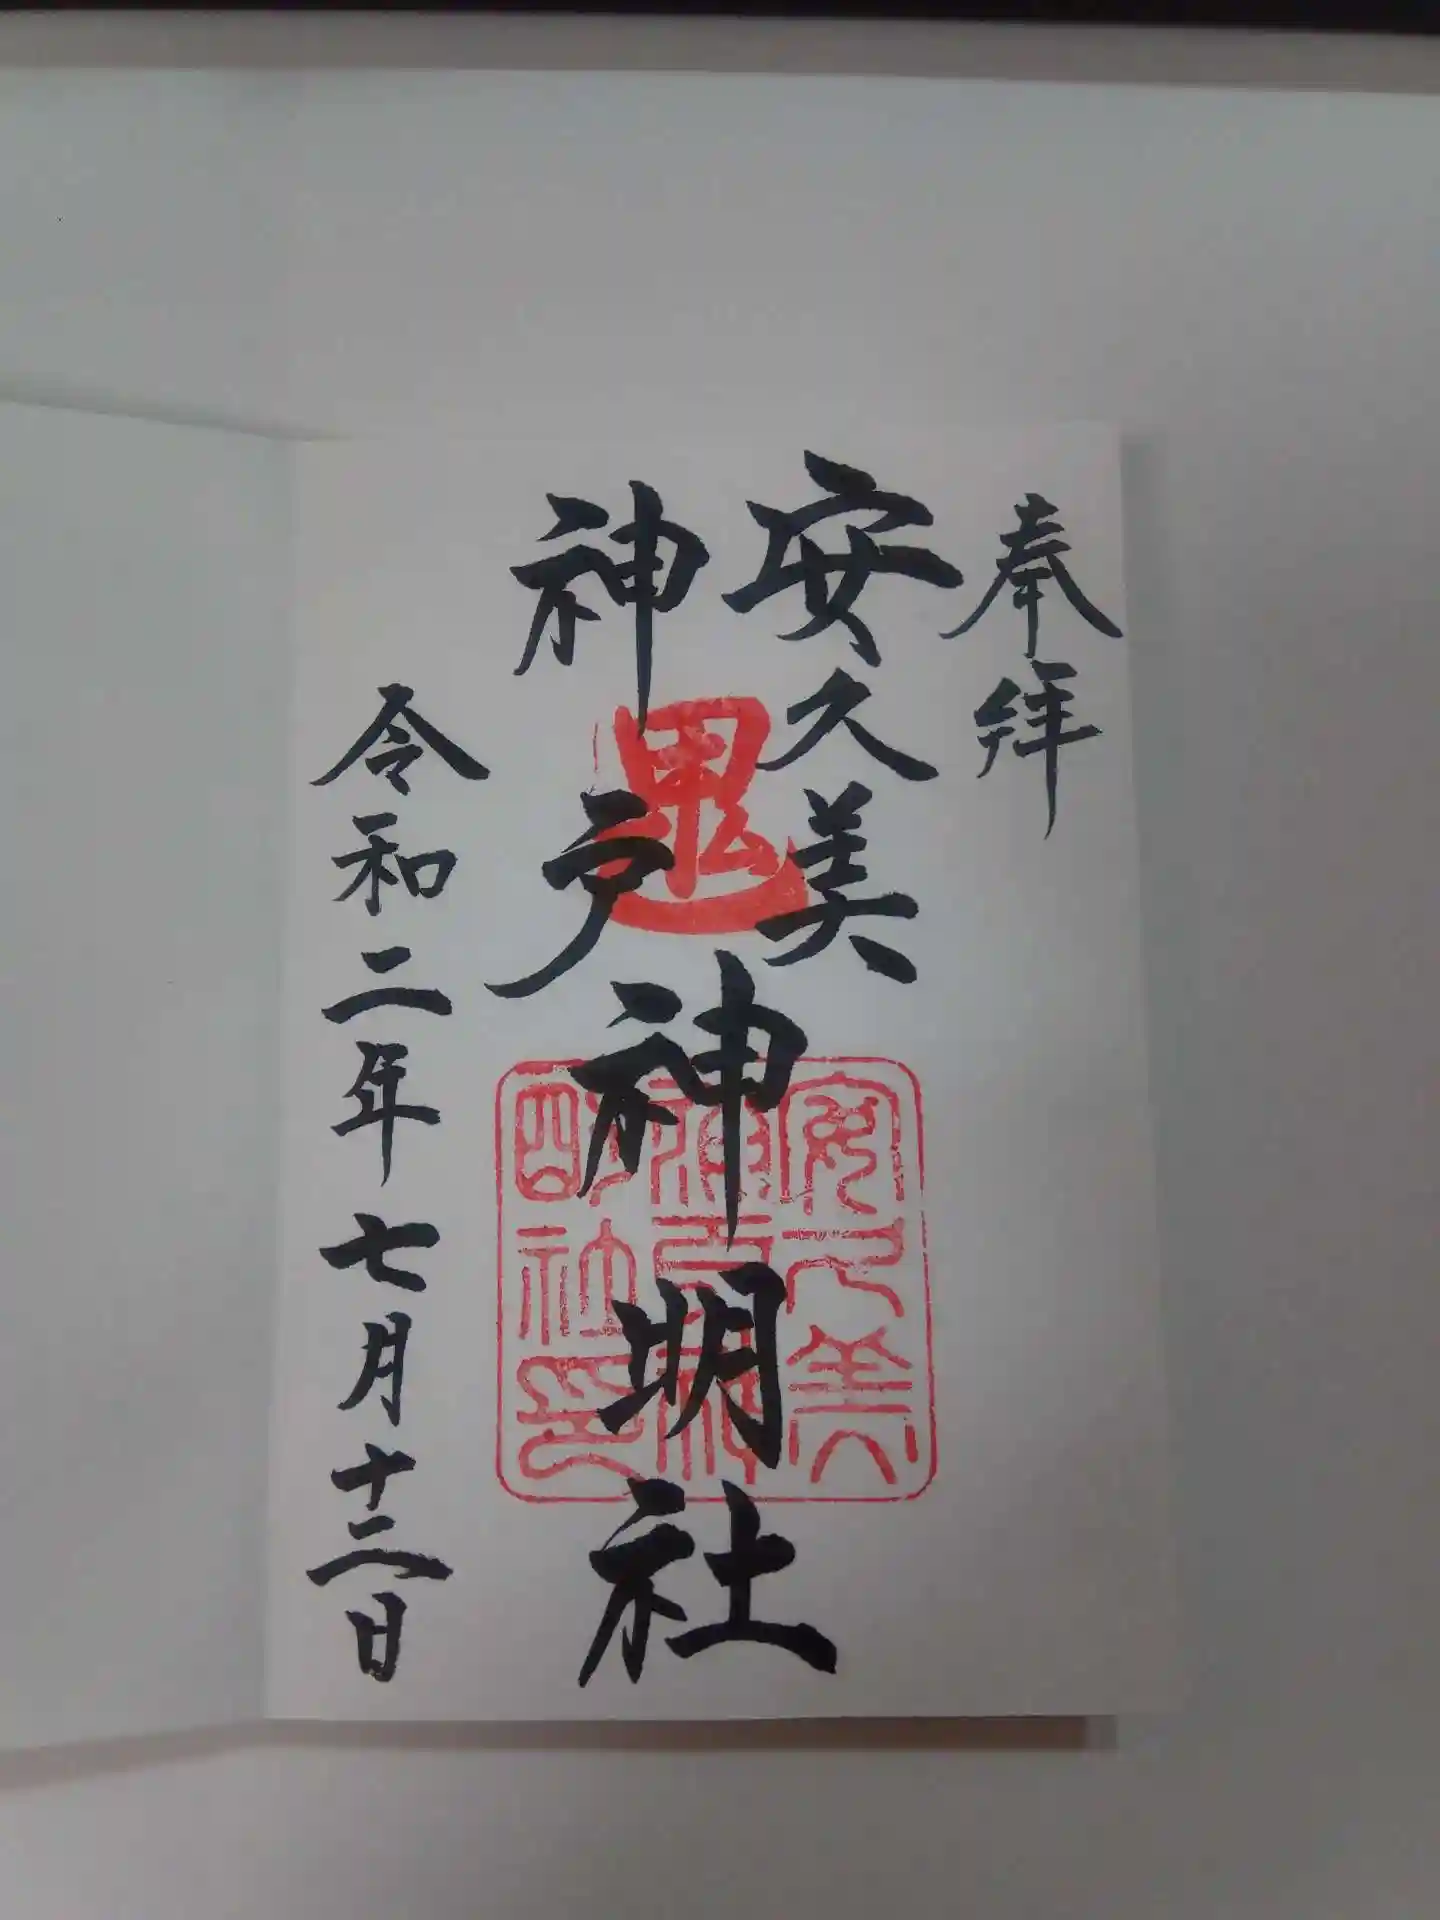 奉拝
安久美
神戸
神明社
安久美
神戸神
明社印
令和二年七月十二日